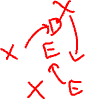 X
D
X E L
X E